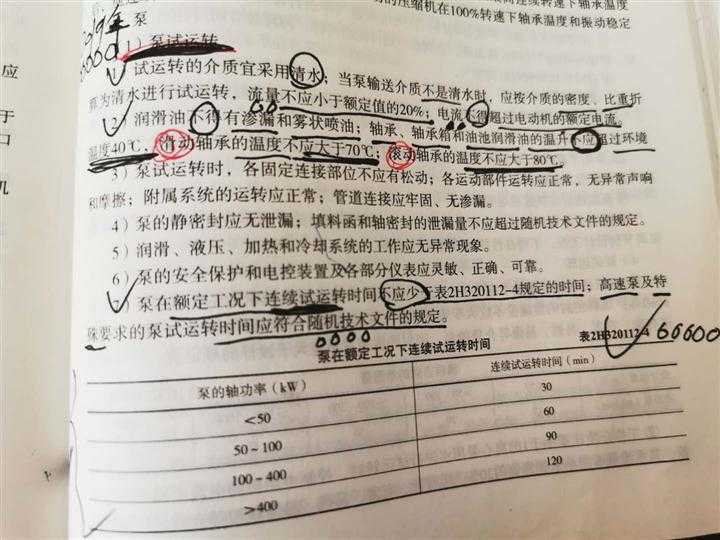 的压缩机在100%转速下轴承温度和振动稳定
2019年
泵
1）泵试运转
试运转的介质宜采用清水；当泵输送介质不是清水时，应按介质的密度、比重折
算为清水进行试运转，流量不应小于额定值的20%；电流不得超过电动机的额定电流。
2）润滑油不得有渗漏和雾状喷油；轴承、轴承箱和油池润滑油的温升不应超过环境
温度40℃，滑动轴承的温度不应大于70℃；滚动轴承的温度不应大于80℃。
3）泵试运转时，各固定连接部位不应有松动；各运动部件运转应正常，无异常声响
和摩擦；附属系统的运转应正常；管道连接应牢固、无渗漏。
4）泵的静密封应无泄漏；填料函和轴密封的泄漏量不应超过随机技术文件的规定。
5）润滑、液压、加热和冷却系统的工作应无异常现象。
6）泵的安全保护和电控装置及各部分仪表应灵敏、正确、可靠。
7）泵在额定工况下连续试运转时间不应少于表2H320112-4规定的时间；高速泵及特
殊要求的泵试运转时间应符合随机技术文件的规定。
泵在额定工况下连续试运转时间 表2H320112-4
泵的轴功率（kW） 连续试运转时间（min）
<50 30
50~100 60
100~400 90
>400 120
应
于
口
机